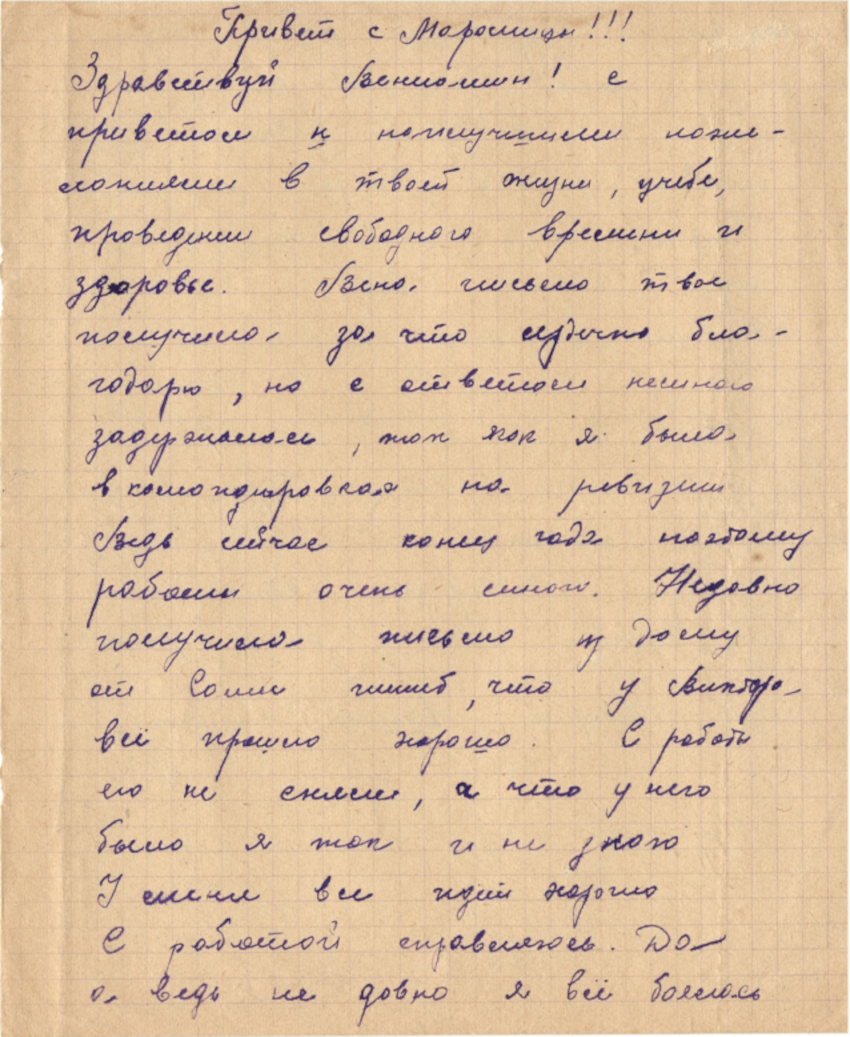 Привет с Марошицы!!!
Здравствуй Вениамин! с
приветом и наилучшими поже-
ланиями в твоей жизни, учебе,
проведении свободного времени и
здоровье. Вена, письмо твое
получила за что сердечно бла-
годарю, но с ответом немного
задержалась, так как я была
в командировках на ревизии
Ведь сейчас конец года поэтому
работы очень много. Недавно
получила письмо из дому
от Сани пишет, что у Виктора
всё прошло хорошо. С работы
его не сняли, а что у него
было я так и не знаю
У меня все идет хорошо
С работой справляюсь. Да
а ведь не давно я всё боялась